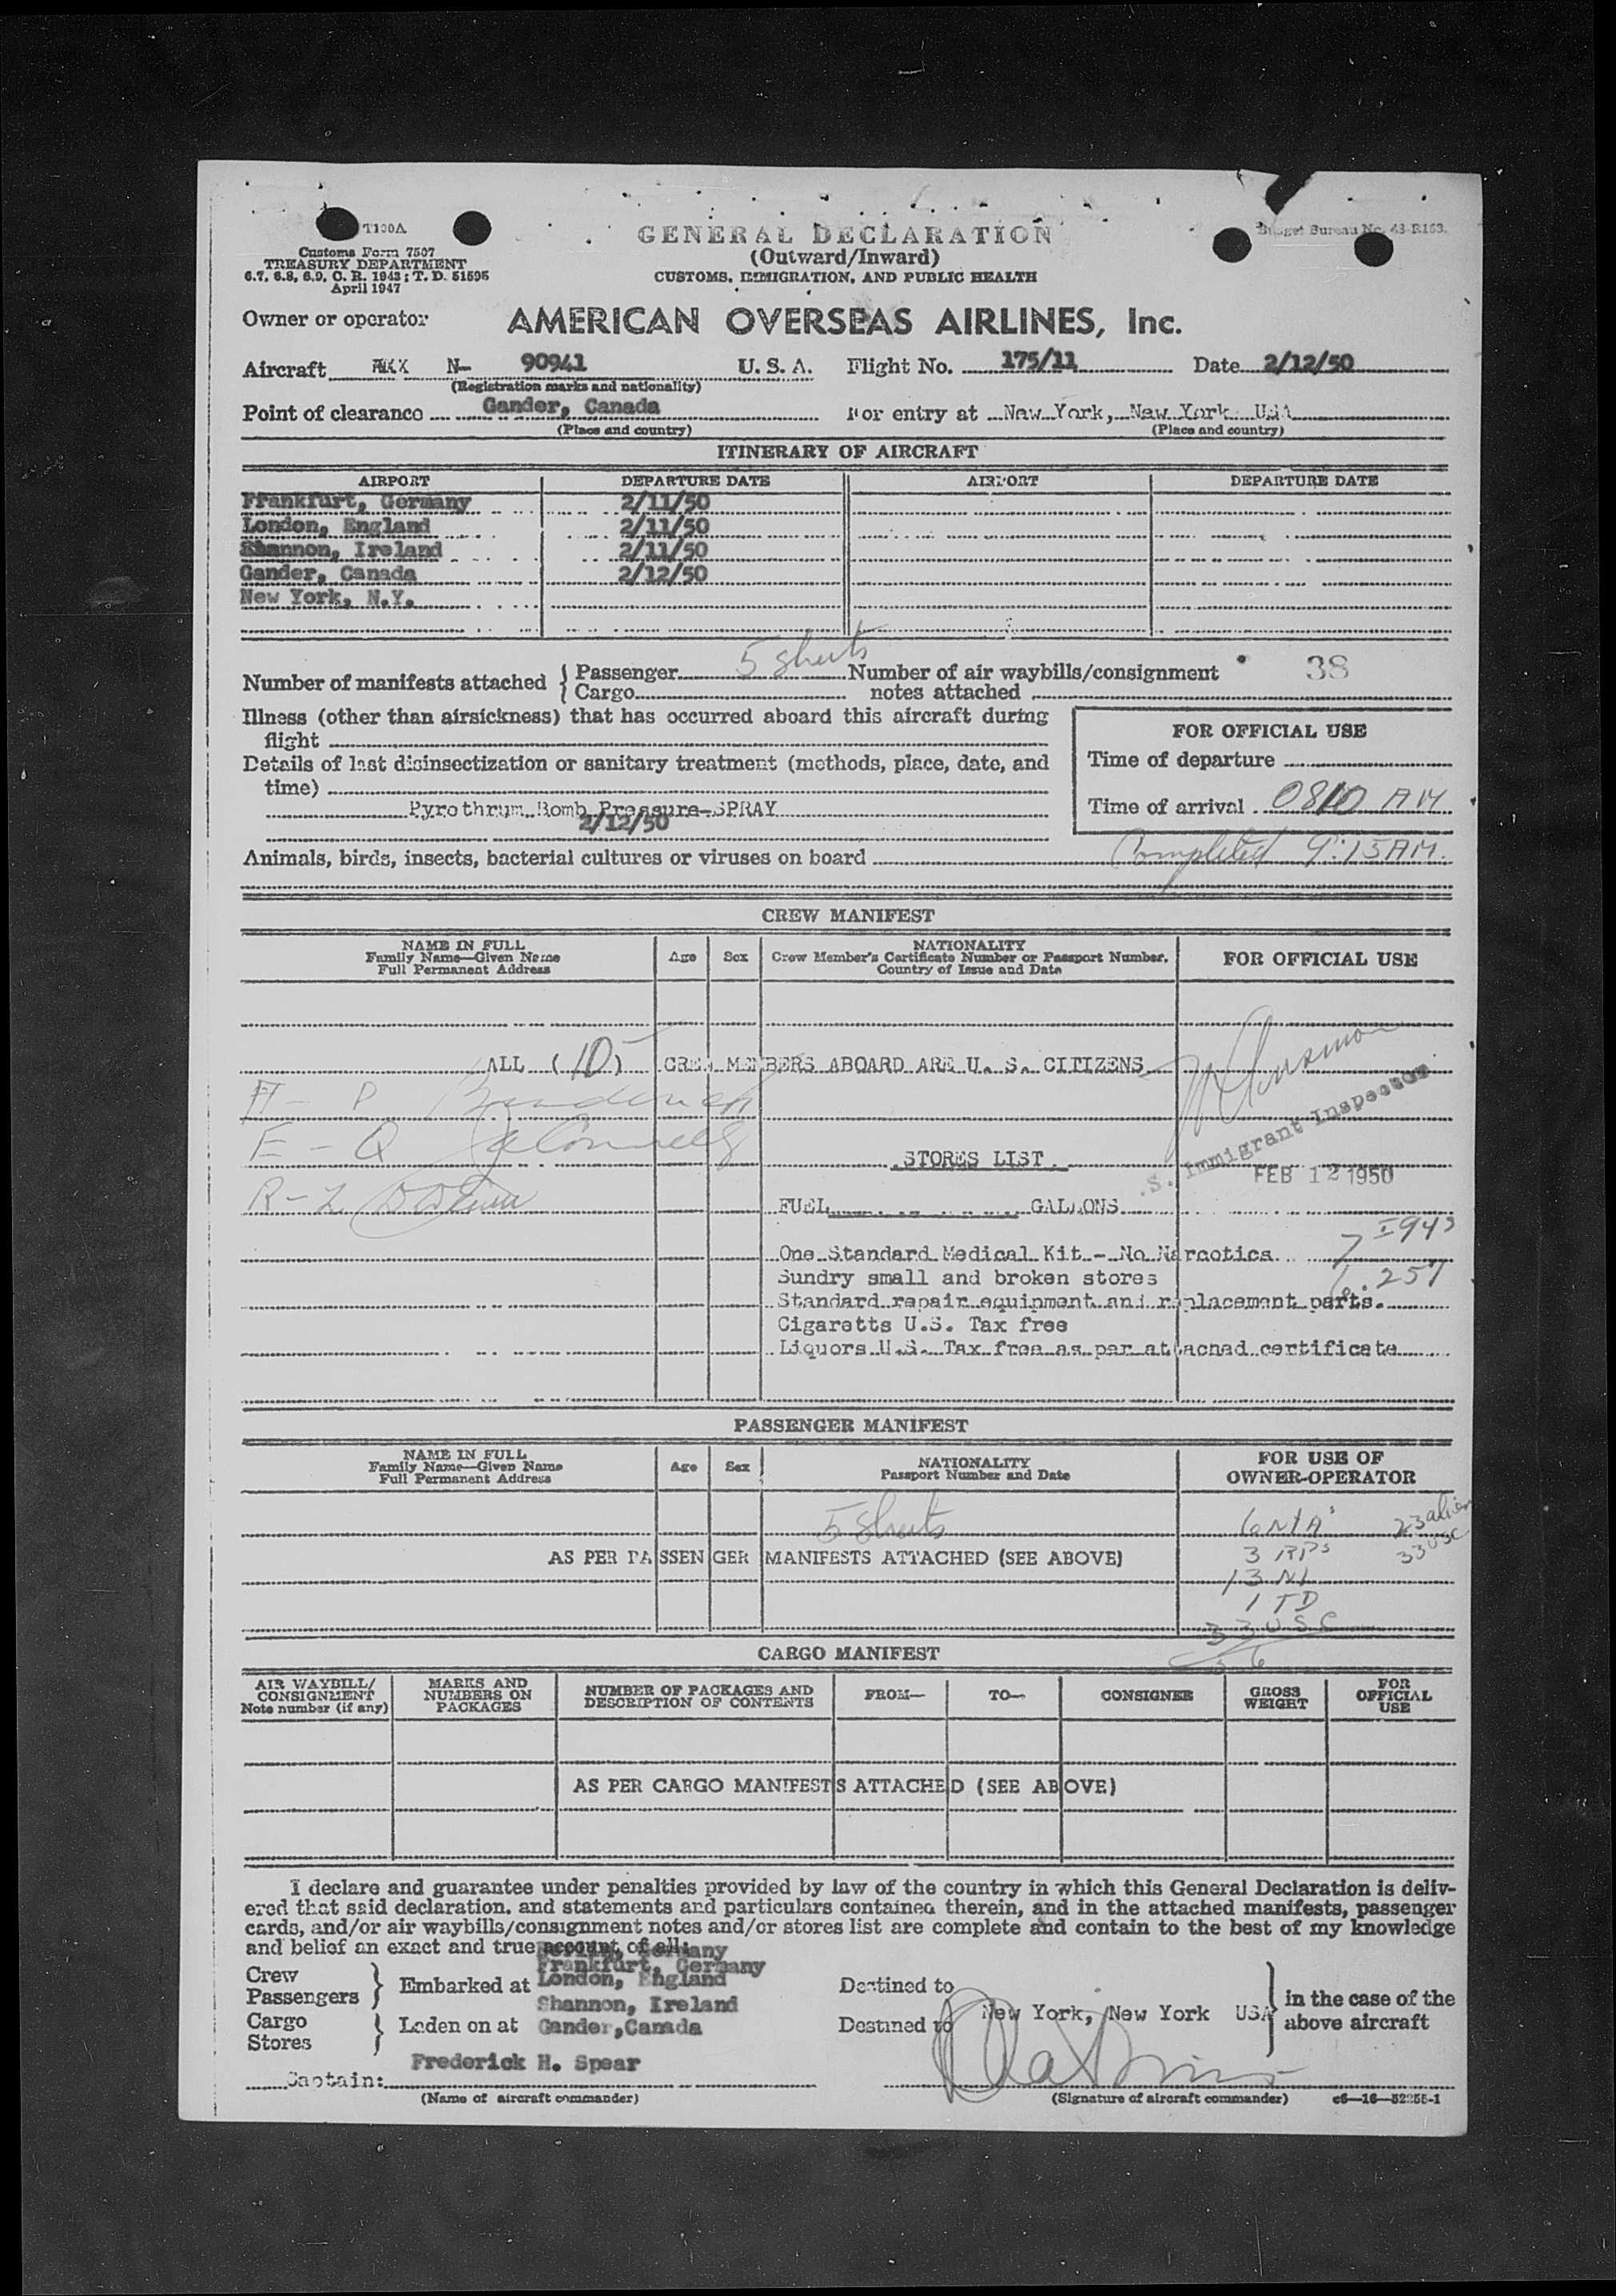 T100A
Customs Form 7507
TREASURY DEPARTMENT
6.7, 6.8, 6.9, C. R. 1943; T. D. 51595
April 1947
GENERAL DECLARATION
(Outward/Inward)
CUSTOMS, IMMIGRATION, AND PUBLIC HEALTH
Budget Bureau No. 43-R163.
Owner or operator AMERICAN OVERSEAS AIRLINES, Inc.
Aircraft N- 90941 U. S. A. Flight No. 175/11 Date 2/12/50
(Registration marks and nationality)
Point of clearance Gander, Canada For entry at New York, New York USA
(Place and country) (Place and country)
ITINERARY OF AIRCRAFT
AIRPORT DEPARTURE DATE AIRPORT DEPARTURE DATE
Frankfurt, Germany 2/11/50
London, England 2/11/50
Shannon, Ireland 2/11/50
Gander, Canada 2/12/50
New York, N.Y.
Number of manifests attached { Passenger 5 sheets Number of air waybills/consignment 38
{ Cargo notes attached
Illness (other than airsickness) that has occurred aboard this aircraft during
flight
Details of last disinsectization or sanitary treatment (methods, place, date, and
time)
Pyrothrum Bomb Pressure-SPRAY
2/12/50
FOR OFFICIAL USE
Time of departure
Time of arrival 0810 AM
Animals, birds, insects, bacterial cultures or viruses on board Completed 9:15 AM.
CREW MANIFEST
NAME IN FULL Age Sex NATIONALITY FOR OFFICIAL USE
Family Name—Given Name Crew Member's Certificate Number or Passport Number,
Full Permanent Address Country of Issue and Date
ALL (10) CREW MEMBERS ABOARD ARE U. S. CITIZENS
A - P
E - Q
R - Z
.S. Immigrant Inspector
FEB 12 1950
STORES LIST
FUEL GALLONS
One Standard Medical Kit - No Narcotics
Sundry small and broken stores
Standard repair equipment and replacement parts.
Cigaretts U.S. Tax free
Liquors U.S. Tax free as per attached certificate
PASSENGER MANIFEST
NAME IN FULL Age Sex NATIONALITY FOR USE OF
Family Name—Given Name Passport Number and Date OWNER-OPERATOR
Full Permanent Address
5 Sheets
AS PER PASSENGER MANIFESTS ATTACHED (SEE ABOVE)
3 RPs
13 NI
1 TD
33 USC
23 alien
33 USC
CARGO MANIFEST
AIR WAYBILL/ MARKS AND NUMBER OF PACKAGES AND FROM— TO— CONSIGNEE GROSS FOR
CONSIGNMENT NUMBERS ON DESCRIPTION OF CONTENTS WEIGHT OFFICIAL
Note number (if any) PACKAGES USE
AS PER CARGO MANIFESTS ATTACHED (SEE ABOVE)
I declare and guarantee under penalties provided by law of the country in which this General Declaration is deliv-
ered that said declaration, and statements and particulars contained therein, and in the attached manifests, passenger
cards, and/or air waybills/consignment notes and/or stores list are complete and contain to the best of my knowledge
and belief an exact and true account of all:
Crew
Passengers } Embarked at
Germany
Frankfurt, Germany
London, England
Shannon, Ireland
Destined to
Cargo
Stores } Laden on at Gander, Canada Destined to New York, New York USA } in the case of the
above aircraft
Captain: Frederick H. Spear
(Name of aircraft commander) (Signature of aircraft commander) c6—16—52255-1